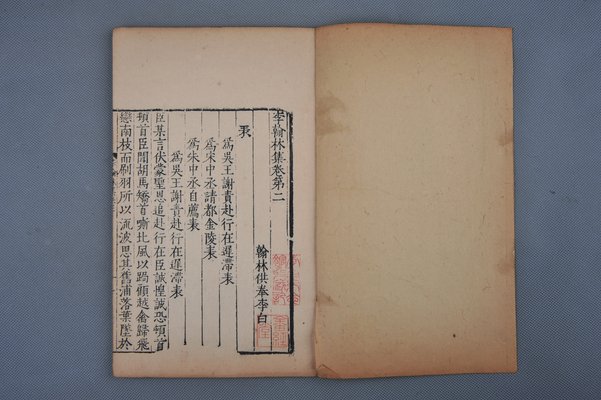 李翰林集卷第二
翰林供奉李白
表
爲吳王謝責赴行在遲滯表
爲宋中丞請都金陵表
爲宋中丞自薦表
爲吳王謝責赴行在遲滯表
臣某言伏蒙聖恩追赴行在臣誠惶誠恐頓首
頓首臣聞胡馬矯首嘶北風以跼顧越禽歸飛
戀南枝而刷羽所以流波思其舊浦落葉墜於